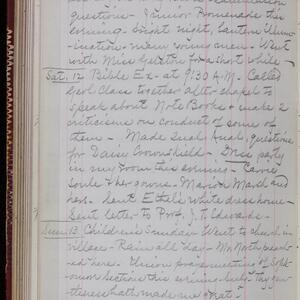 questions - Junior Promenade this
evening - bright night, Lantern Illum-
ination, many young men. Went
with Miss for a short while -
Sat. 12 Bible Ex - at 9:30 A.M. Called
Geol class together after chapel to
speak about Note Books & make 2
criticisms on conduct of some of
them - Made Qual Anal. questions
for Daisy Crowninshield - party
in my room this evening - Carrie
Soule & her , Marion March and
hers. Sent Ethel's white dress home -
Sent letter to Prof. J.
Sun. 13 Children's Sunday Went to church in
village - Rain all day - Mr North preach-
ed here. Union prayer meeting of
section this evening - "Thy gen-
tleness hath made me great" -